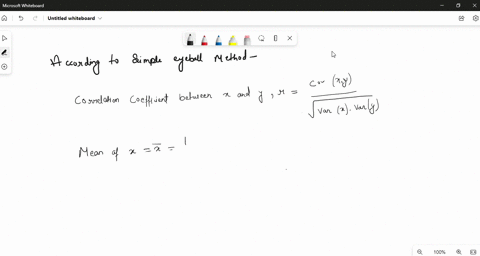 Microsoft Whiteboard
Untitled whiteboard
According to Simple eyeball Method—
Correlation Coefficient between x and y, r = Cov (x,y) / √Var (x). Var(y)
Mean of x = x̄ = 1
100%